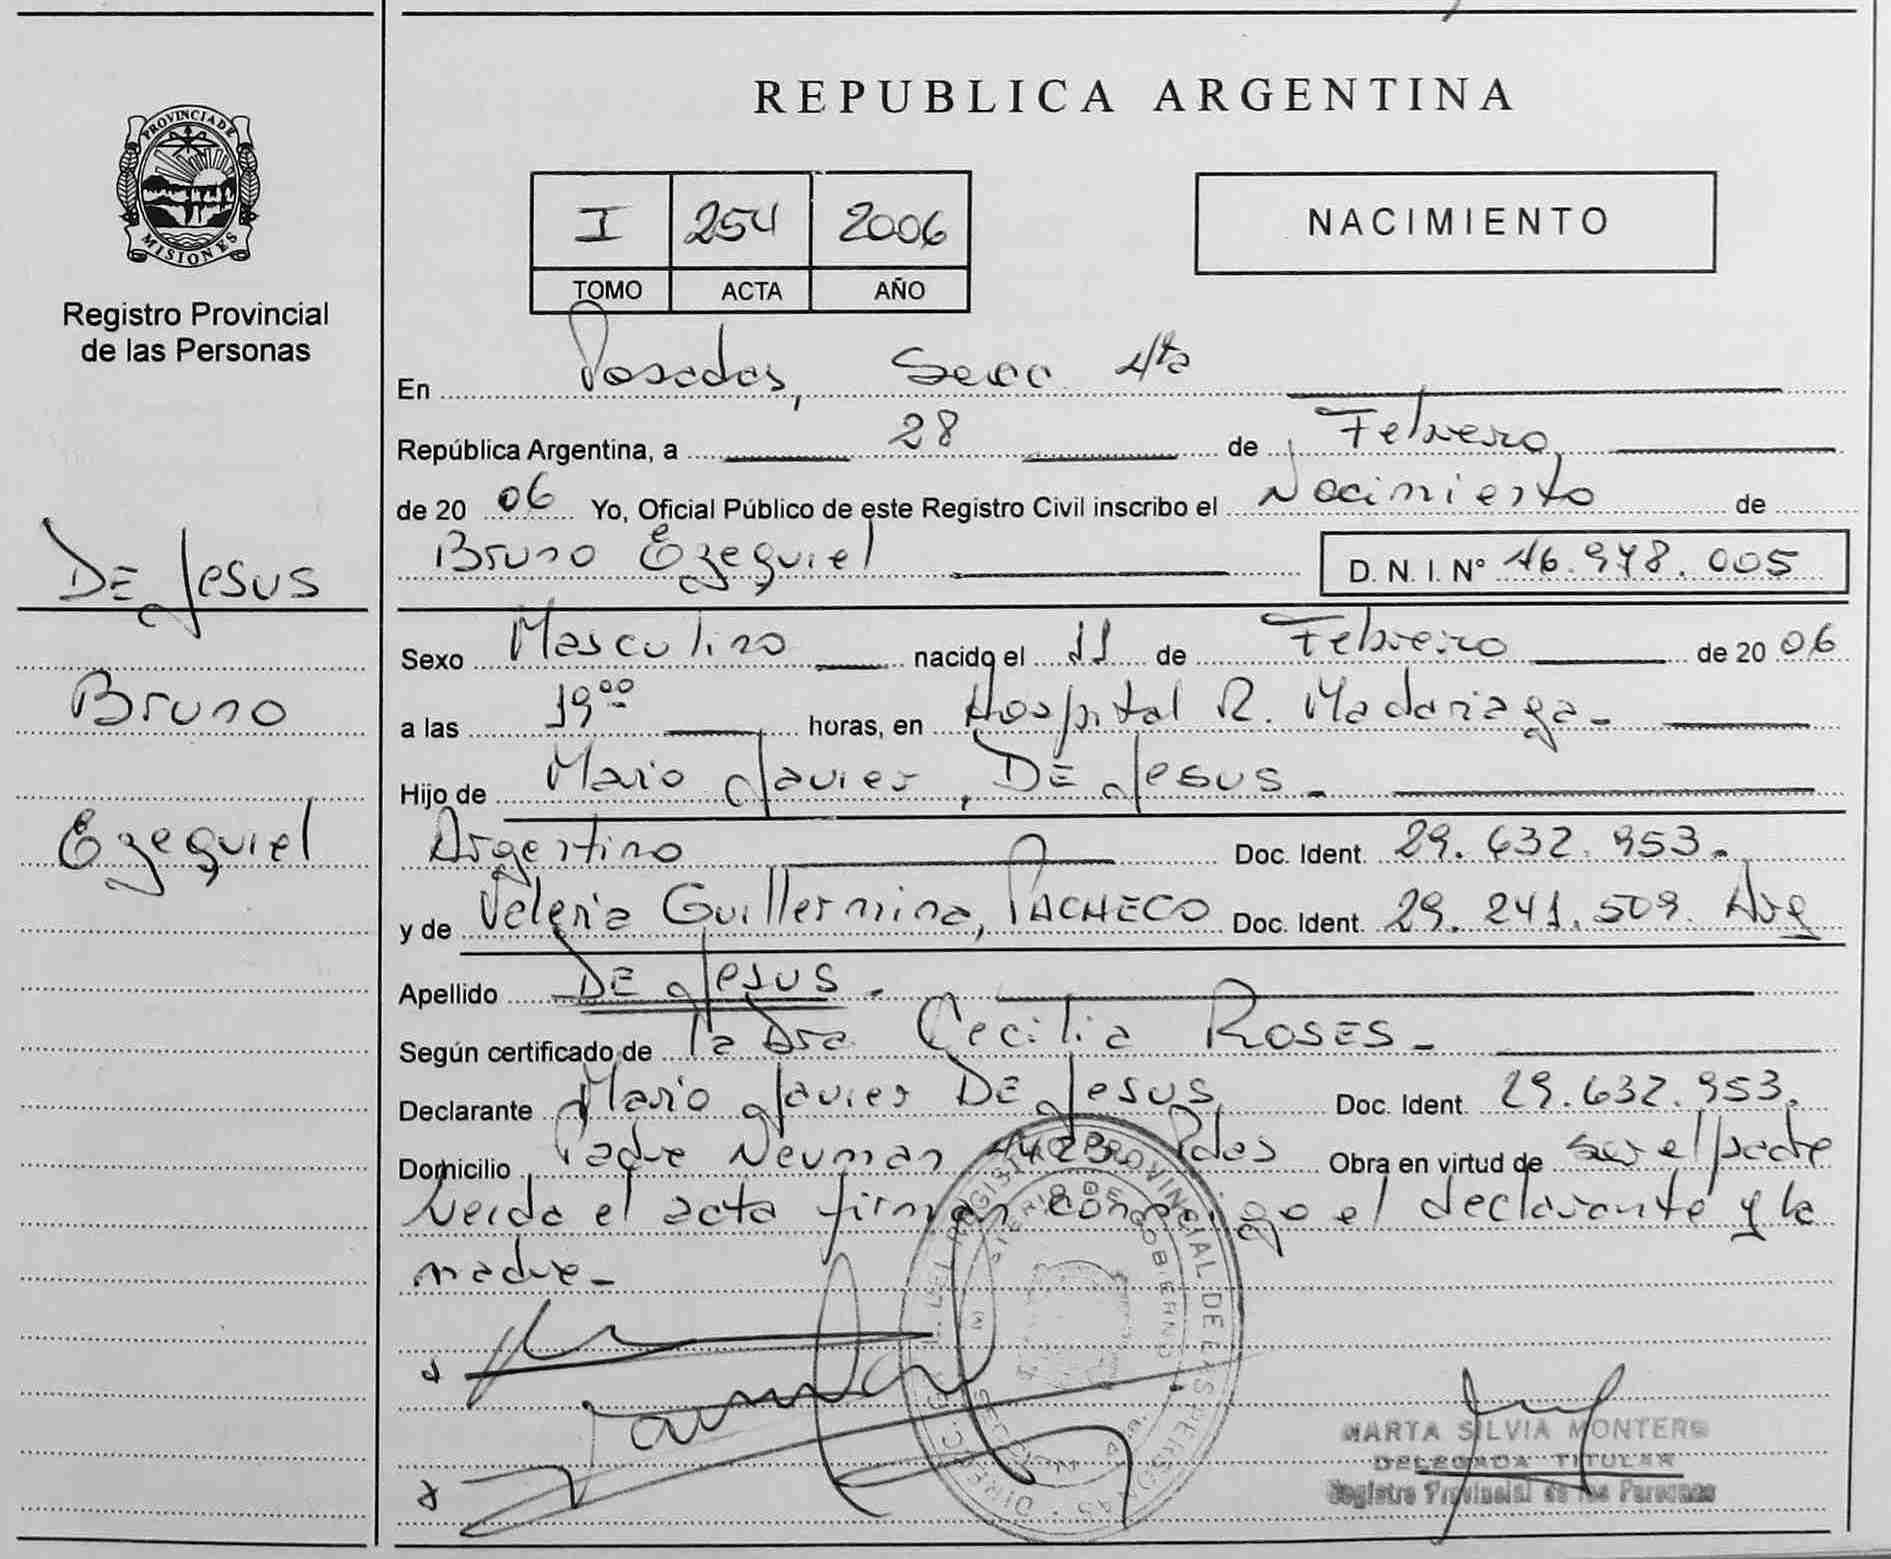 PROVINCIA DE
MISIONES
Registro Provincial
de las Personas
DE Jesus
Bruno
Ezequiel
REPUBLICA ARGENTINA
I 254 2006
TOMO ACTA AÑO
NACIMIENTO
En Posadas, Secc 4ta
República Argentina, a 28 de Febrero
de 20 06 Yo, Oficial Público de este Registro Civil inscribo el Nacimiento de
Bruno Ezequiel D. N. I. Nº 46.978.005
Sexo Masculino nacido el 11 de Febrero de 20 06
a las 19⁰⁰ horas, en Hospital R. Madariaga-
Hijo de Mario Javier, DE Jesus -
Argentino Doc. Ident. 29.632.953.-
y de Valeria Guillermina, PACHECO Doc. Ident. 29.241.509. Arg
Apellido DE Jesus -
Según certificado de la Dra Cecilia ROSES -
Declarante Mario Javier DE Jesus Doc. Ident. 29.632.953.
Domicilio Padre Neuman 4423 Pdas Obra en virtud de ser el padre
Leida el acta firman conmigo el declarante y la
madre -
MARTA SILVIA MONTERO
DELEGADA TITULAR
Registro Provincial de las Personas